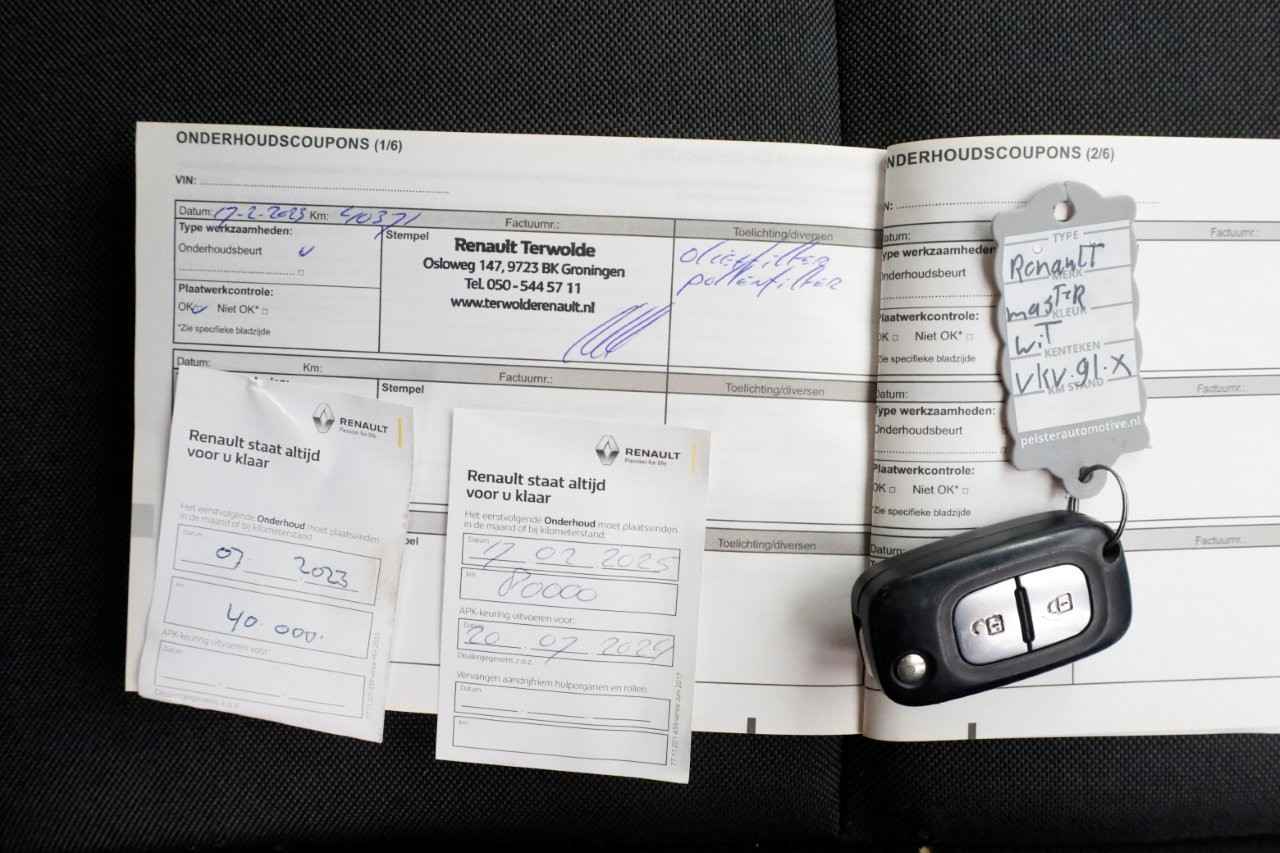 ONDERHOUDSCOUPONS (1/6)
VIN:
Datum: 17-2-2023 Km: 40371 Factuurnr.: Toelichting/diversen
Type werkzaamheden:
Onderhoudsbeurt
Plaatwerkcontrole:
OK Niet OK*
*Zie specifieke bladzijde
Stempel
Renault Terwolde
Osloweg 147, 9723 BK Groningen
Tel. 050 - 544 57 11
www.terwolderenault.nl
oliefilter
pollenfilter
Datum: Km: Factuurnr.: Toelichting/diversen
Stempel
Toelichting/diversen
RENAULT
Passion for life
Renault staat altijd
voor u klaar
Het eerstvolgende Onderhoud moet plaatsvinden
in de maand of bij kilometerstand:
Datum
07 2023
km
40.000.
APK-keuring uitvoeren voor:
Datum
RENAULT
Passion for life
Renault staat altijd
voor u klaar
Het eerstvolgende Onderhoud moet plaatsvinden
in de maand of bij kilometerstand:
Datum
17 02 2025
km
80000
APK-keuring uitvoeren voor:
Datum
20 07 2024
Vervangen aandrijfriem hulporganen en rollen:
Datum
km
NDERHOUDSCOUPONS (2/6)
N:
atum: Factuurnr.:
Type werkzaamheden
Onderhoudsbeurt
Plaatwerkcontrole:
OK Niet OK*
Zie specifieke bladzijde
Datum: Factuurnr.:
Type werkzaamheden:
Onderhoudsbeurt
Plaatwerkcontrole:
OK Niet OK*
*Zie specifieke bladzijde
Datum: Factuurnr.:
TYPE
RenaulT
MERK
masTER
KLEUR
WiT
KENTEKEN
VKV.91.X
KM STAND
pelsterautomotive.nl